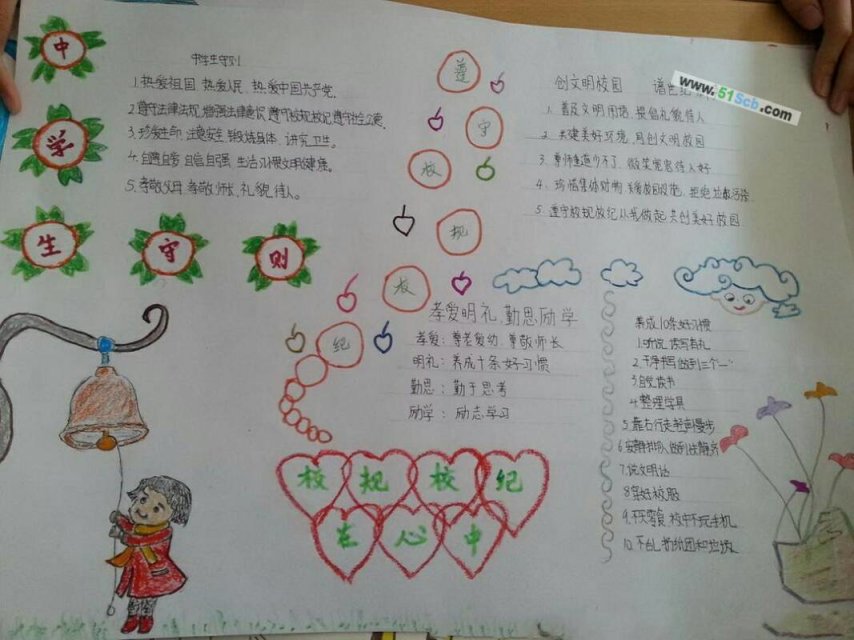 中学生守则
中学生守则
1.热爱祖国 热爱人民 热爱中国共产党。
2.遵守法律法规 增强法律意识 遵守校规校纪 遵守社会公德。
3.珍爱生命 注意安全 锻炼身体 讲究卫生。
4.自尊自爱 自信自强 生活习惯文明健康。
5.孝敬父母 孝敬师长 礼貌待人。
遵守校规校纪
创文明校园 谱
www.51Scb.com
1. 普及文明用语 提倡礼貌待人
2. 共建美好环境 同创文明校园
3. 尊师重道少不了 微笑宽容待人好
4. 珍惜集体财物 拒绝垃圾污染
5. 遵守校规校纪从我做起 共创美好校园
孝爱明礼、勤思励学
孝爱：尊老爱幼 尊敬师长
明礼：养成十条好习惯
勤思：勤于思考
励学：励志学习
养成10条好习惯
1.听说读写有礼
2.干净书写做到三个一
3.自觉读书
4.整理学具
5.靠右行走轻声慢步
6.安静排队做到快静齐
7.说文明话
8.穿好校服
9.不买零食 校中不玩手机
10.不乱
校规校纪
在心中